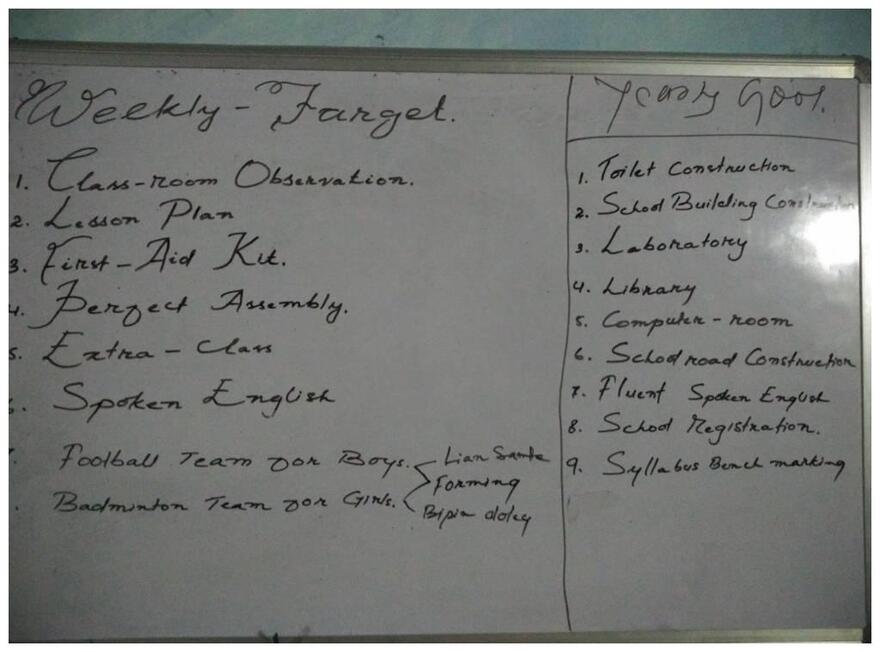 Weekly - Target.
1. Class-room Observation.
2. Lesson Plan
3. First-Aid Kit.
4. Perfect Assembly.
5. Extra-Class
6. Spoken English
Football Team for Boys.
Badminton Team for Girls.
Lian
Forming
Bipin doley
Yearly Goal.
1. Toilet Construction
2. School Building Construction
3. Laboratory
4. Library
5. Computer-room
6. School road Construction
7. Fluent Spoken English
8. School Registration.
9. Syllabus Bench marking